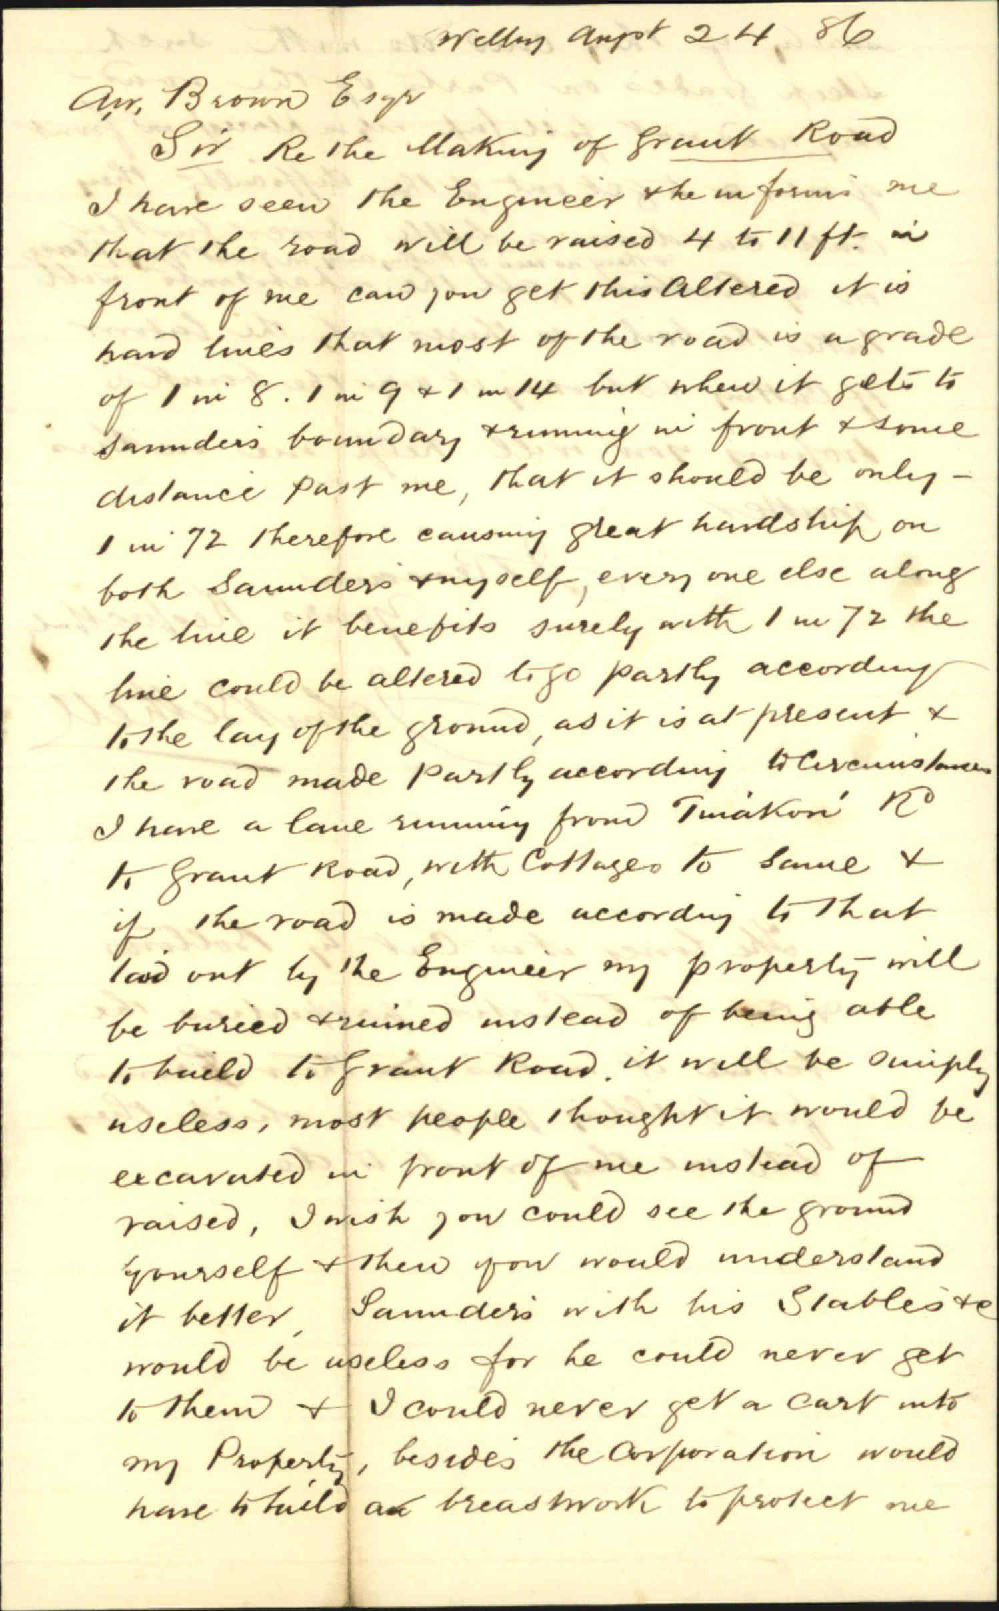 Wellng Augst 24 86
Aw. Brown Esqr
Sir Re the Making of Grant Road
I have seen the Engineer & he informs me
that the road will be raised 4 to 11 ft. in
front of me can you get this altered it is
hard lines that most of the road is a grade
of 1 in 8. 1 in 9 & 1 in 14 but when it gets to
Saunders boundary & running in front & some
distance past me, that it should be only -
1 in 72 therefore causing great hardship on
both Saunders & myself, every one else along
the line it benefits surely with 1 in 72 the
line could be altered to go partly according
to the lay of the ground, as it is at present &
the road made partly according to Circumstances
I have a lane running from Tinakori Rd
to Grant Road, with Cottages to same &
if the road is made according to that
laid out by the Engineer my property will
be buried & ruined instead of being able
to build to Grant Road. it will be simply
useless, most people thought it would be
excavated in front of me instead of
raised, I wish you could see the ground
yourself & then you would understand
it better, Saunders with his Stables &c
would be useless for he could never get
to them & I could never get a cart into
my Property, besides the Corporation would
have to build a breastwork to protect me